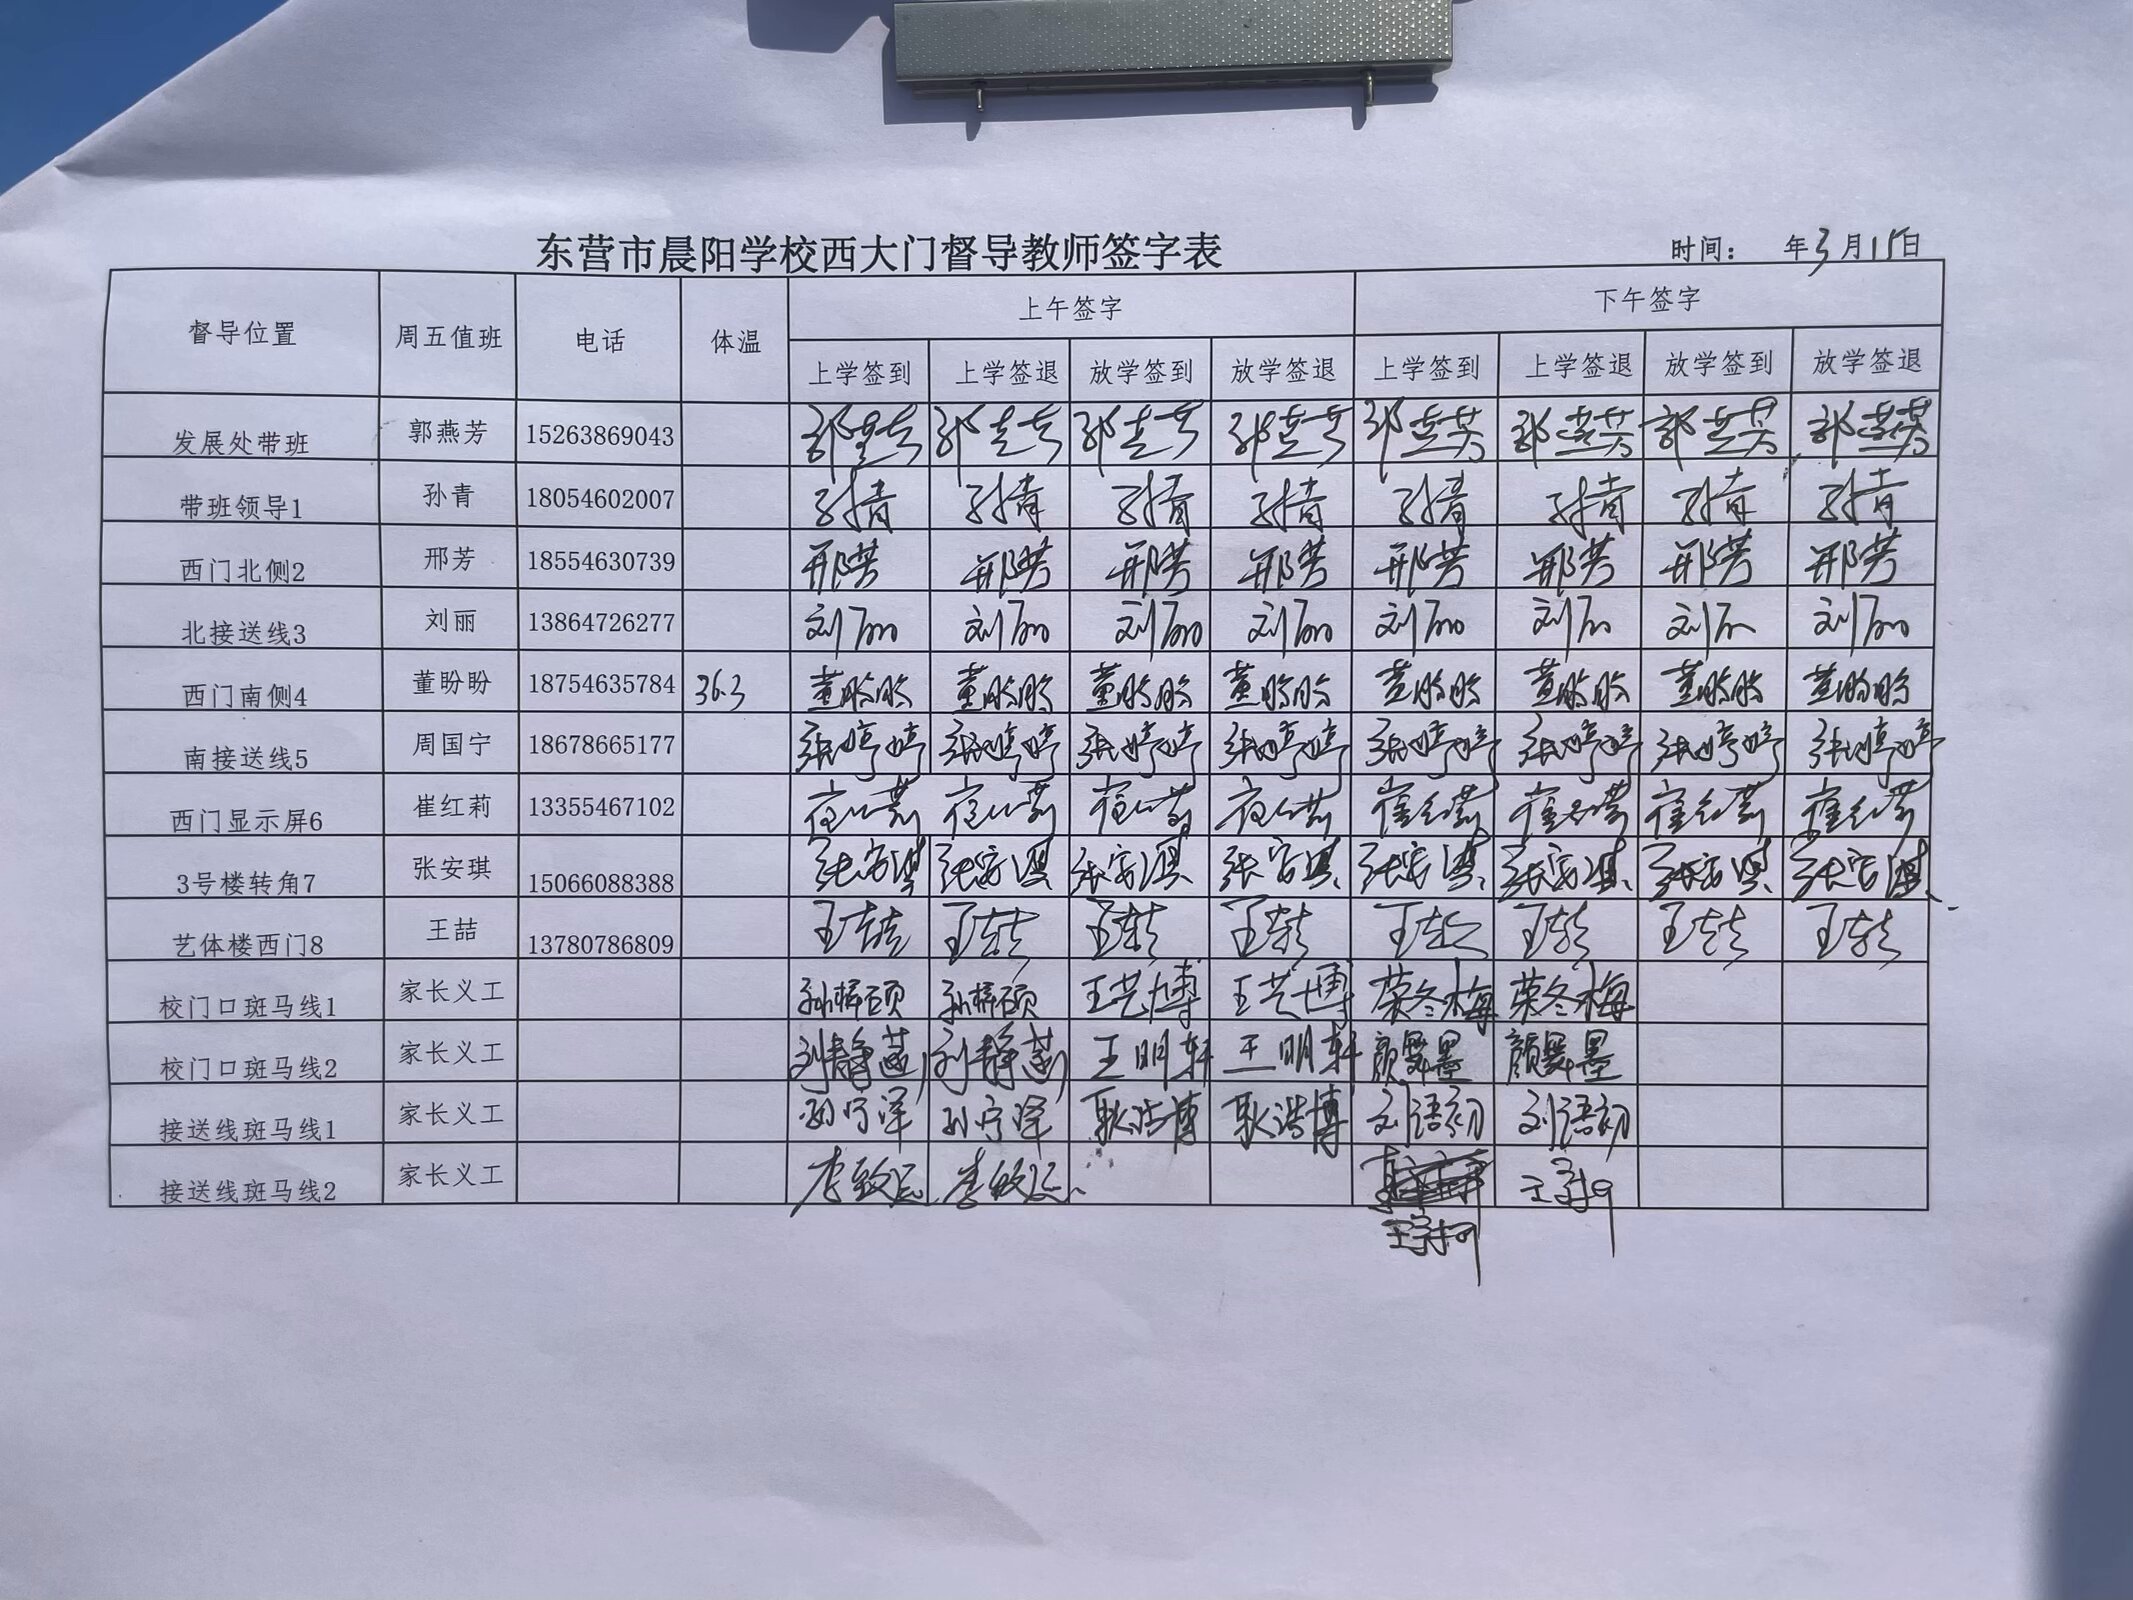 东营市晨阳学校西大门督导教师签字表
时间： 年3月15日
督导位置 周五值班 电话 体温 上午签字 下午签字
上学签到 上学签退 放学签到 放学签退 上学签到 上学签退 放学签到 放学签退
发展处带班 郭燕芳 15263869043
带班领导1 孙青 18054602007 孙青 孙青 孙青 孙青 孙青 孙青 孙青 孙青
西门北侧2 邢芳 18554630739 邢芳 邢芳 邢芳 邢芳 邢芳 邢芳 邢芳 邢芳
北接送线3 刘丽 13864726277 刘丽 刘丽 刘丽 刘丽 刘丽 刘丽 刘丽 刘丽
西门南侧4 董盼盼 18754635784 36.3 董盼盼 董盼盼 董盼盼 董盼盼 董盼盼 董盼盼 董盼盼 董盼盼
南接送线5 周国宁 18678665177 张婷婷 张婷婷 张婷婷 张婷婷 张婷婷 张婷婷 张婷婷 张婷婷
西门显示屏6 崔红莉 13355467102 崔红莉 崔红莉 崔红莉 崔红莉 崔红莉 崔红莉 崔红莉 崔红莉
3号楼转角7 张安琪 15066088388 张安琪 张安琪 张安琪 张安琪 张安琪 张安琪 张安琪 张安琪
艺体楼西门8 王喆 13780786809 王喆 王喆 王喆 王喆 王喆 王喆 王喆 王喆
校门口斑马线1 家长义工 王艺博 王艺博 荣冬梅 荣冬梅
校门口斑马线2 家长义工 刘静菡 刘静菡 王明轩 王明轩
接送线斑马线1 家长义工 孙宁泽 孙宁泽 耿浩博 耿浩博 刘语初 刘语初
接送线斑马线2 家长义工